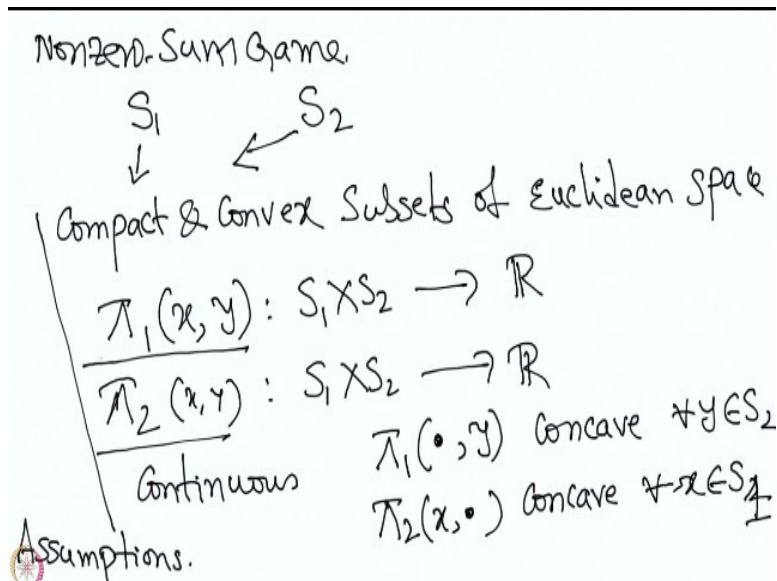 Nonzero-Sum Game.
S₁ S₂
Compact & Convex Subsets of Euclidean Space
π₁(x, y) : S₁ × S₂ → ℝ
π₂(x, y) : S₁ × S₂ → ℝ
Continuous π₁(•, y) Concave ∀ y ∈ S₂
π₂(x, •) Concave ∀ x ∈ S₁
Assumptions.